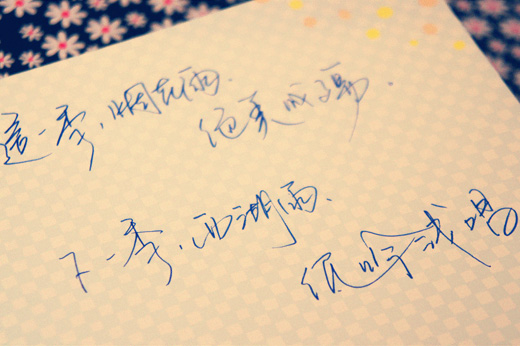 這一季，烟花雨.
绝美成殇.
下一季，西湖雨.
低吟浅唱